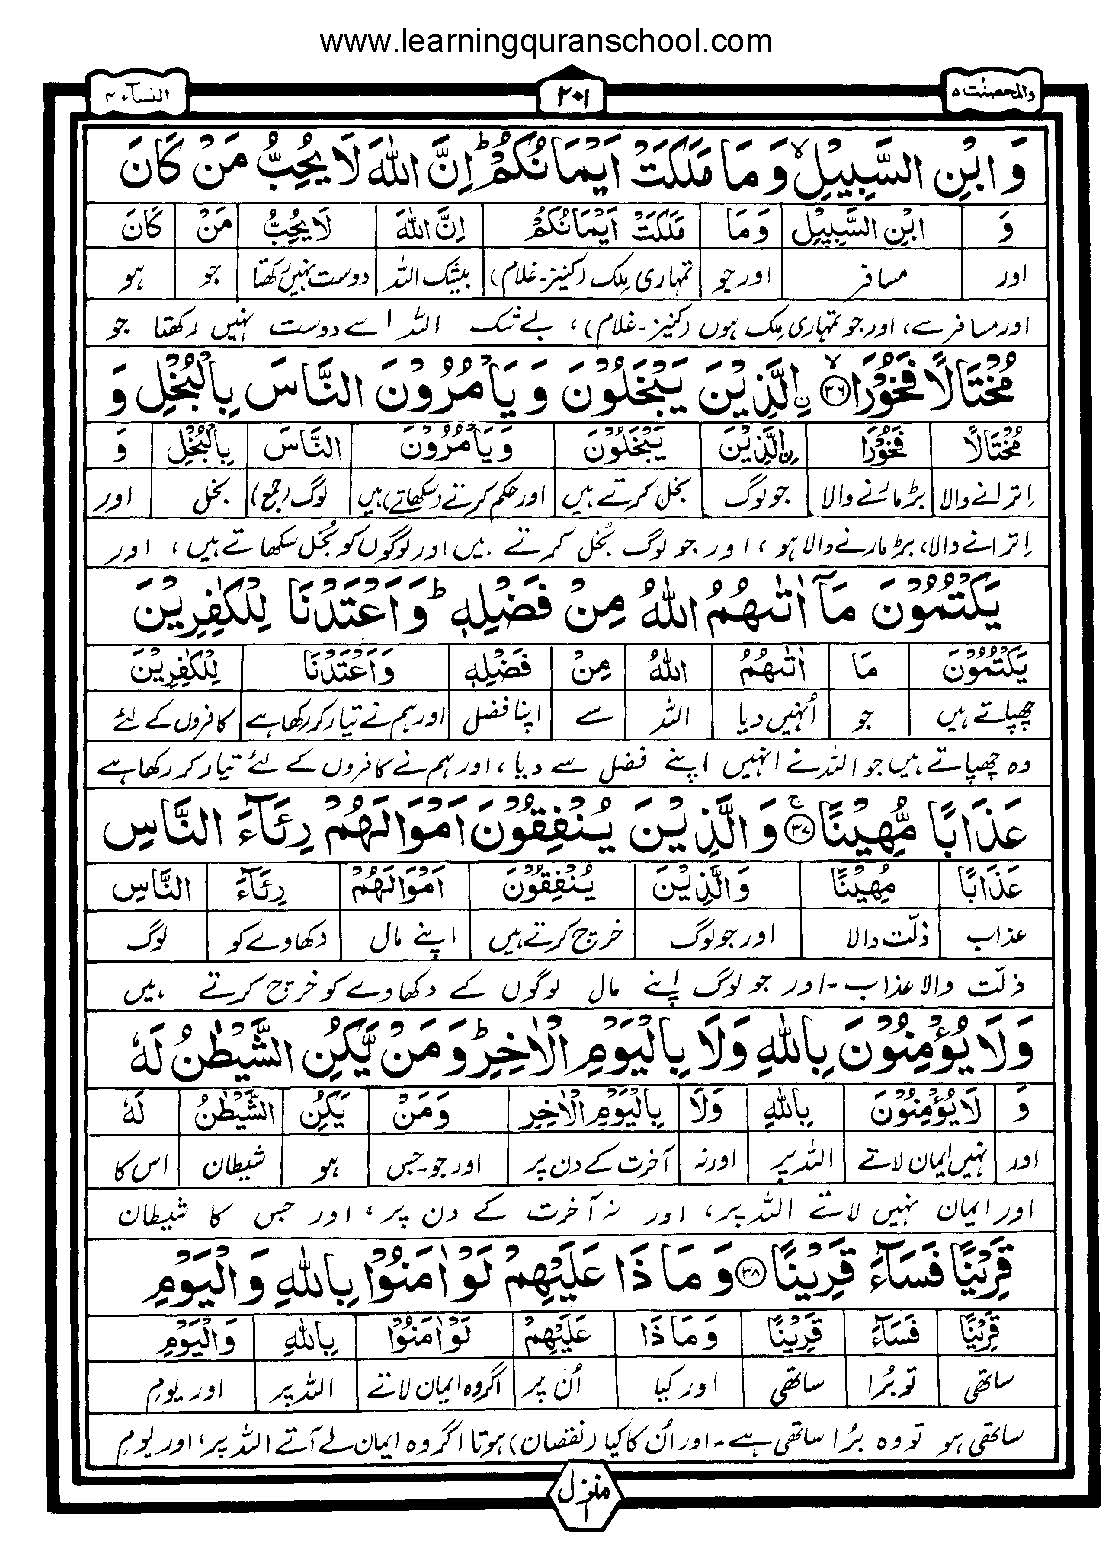 www.learningquranschool.com
النساء ۴
۲۰۱
والمحصنت ۵
وَ ابْنِ السَّبِیْلِ ۙ وَ مَا مَلَكَتْ اَیْمَانُكُمْ ؕ اِنَّ اللّٰهَ لَا یُحِبُّ مَنْ كَانَ
وَ ابْنِ السَّبِیْلِ وَمَا مَلَكَتْ اَیْمَانُكُمْ اِنَّ اللّٰهَ لَا یُحِبُّ مَنْ كَانَ
اور مسافر اور جو تمہاری ملک (کنیز۔غلام) بیشک اللہ دوست نہیں رکھتا جو ہو
اور مسافر سے، اور جو تمہاری ملک ہوں (کنیز۔غلام)، بے شک اللہ اسے دوست نہیں رکھتا جو
مُخْتَالًا فَخُوْرَا ۙ۳۶ ِ۟الَّذِیْنَ یَبْخَلُوْنَ وَ یَاْمُرُوْنَ النَّاسَ بِالْبُخْلِ وَ
مُخْتَالًا فَخُوْرًا ِ۟الَّذِیْنَ یَبْخَلُوْنَ وَیَاْمُرُوْنَ النَّاسَ بِالْبُخْلِ وَ
اِترانے والا بڑ مارنے والا جو لوگ بخل کرتے ہیں اور حکم کرتے (سکھاتے) ہیں لوگ (جمع) بخل اور
اِترانے والا، بڑ مارنے والا ہو، اور جو لوگ بُخل کرتے ہیں اور لوگوں کو بُخل سکھاتے ہیں، اور
یَكْتُمُوْنَ مَاۤ اٰتٰىهُمُ اللّٰهُ مِنْ فَضْلِهٖ ؕ وَاَعْتَدْنَا لِلْكٰفِرِیْنَ
یَكْتُمُوْنَ مَا اٰتٰىهُمُ اللّٰهُ مِنْ فَضْلِهٖ وَاَعْتَدْنَا لِلْكٰفِرِیْنَ
چھپاتے ہیں جو اُنہیں دیا اللہ سے اپنا فضل اور ہم نے تیار کر رکھا ہے کافروں کے لئے
وہ چھپاتے ہیں جو اللہ نے انہیں اپنے فضل سے دیا، اور ہم نے کافروں کے لئے تیار کر رکھا ہے
عَذَابًا مُّهِیْنًا ۚ۳۷ وَالَّذِیْنَ یُنْفِقُوْنَ اَمْوَالَهُمْ رِئَآءَ النَّاسِ
عَذَابًا مُهِیْنًا وَالَّذِیْنَ یُنْفِقُوْنَ اَمْوَالَهُمْ رِئَآءَ النَّاسِ
عذاب ذلّت والا اور جو لوگ خرچ کرتے ہیں اپنے مال دکھاوے کو لوگ
ذلّت والا عذاب۔ اور جو لوگ اپنے مال لوگوں کے دکھاوے کو خرچ کرتے ہیں
وَلَا یُؤْمِنُوْنَ بِاللّٰهِ وَلَا بِالْیَوْمِ الْاٰخِرِ ؕ وَمَنْ یَّكُنِ الشَّیْطٰنُ لَهٗ
وَ لَا یُؤْمِنُوْنَ بِاللّٰهِ وَلَا بِالْیَوْمِ الْاٰخِرِ وَمَنْ یَكُنِ الشَّیْطٰنُ لَهٗ
اور نہیں ایمان لاتے اللہ پر اور نہ آخرت کے دن پر اور جو۔جس ہو شیطان اس کا
اور ایمان نہیں لاتے اللہ پر، اور نہ آخرت کے دن پر، اور جس کا شیطان
قَرِیْنًا فَسَآءَ قَرِیْنًا ۳۸ وَ مَا ذَا عَلَیْهِمْ لَوْ اٰمَنُوْا بِاللّٰهِ وَ الْیَوْمِ
قَرِیْنًا فَسَآءَ قَرِیْنًا وَمَاذَا عَلَیْهِمْ لَوْ اٰمَنُوْا بِاللّٰهِ وَالْیَوْمِ
ساتھی تو بُرا ساتھی اور کیا اُن پر اگر وہ ایمان لاتے اللہ پر اور یومِ
ساتھی ہو تو وہ بُرا ساتھی ہے۔ اور اُن کا کیا (نقصان) ہوتا اگر وہ ایمان لے آتے اللہ پر، اور یومِ
منزل ۱